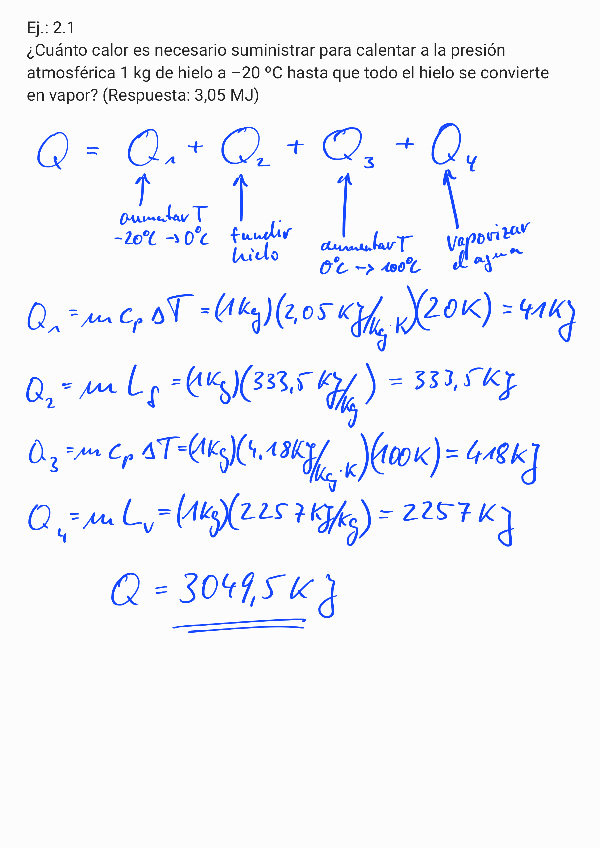 Ej.: 2.1
¿Cuánto calor es necesario suministrar para calentar a la presión
atmosférica 1 kg de hielo a –20 ºC hasta que todo el hielo se convierte
en vapor? (Respuesta: 3,05 MJ)
Q = Q₁ + Q₂ + Q₃ + Q₄
aumentar T
-20°C → 0°C
fundir
hielo
aumentar T
0°C → 100°C
vaporizar
el agua
Q₁ = m cp ΔT = (1Kg)(2,05 KJ/Kg·K)(20K) = 41KJ
Q₂ = m Lf = (1Kg)(333,5 KJ/Kg) = 333,5KJ
Q₃ = m cp ΔT = (1Kg)(4.18KJ/Kg·K)(100K) = 418KJ
Q₄ = m Lv = (1Kg)(2257KJ/Kg) = 2257KJ
Q = 3049,5KJ